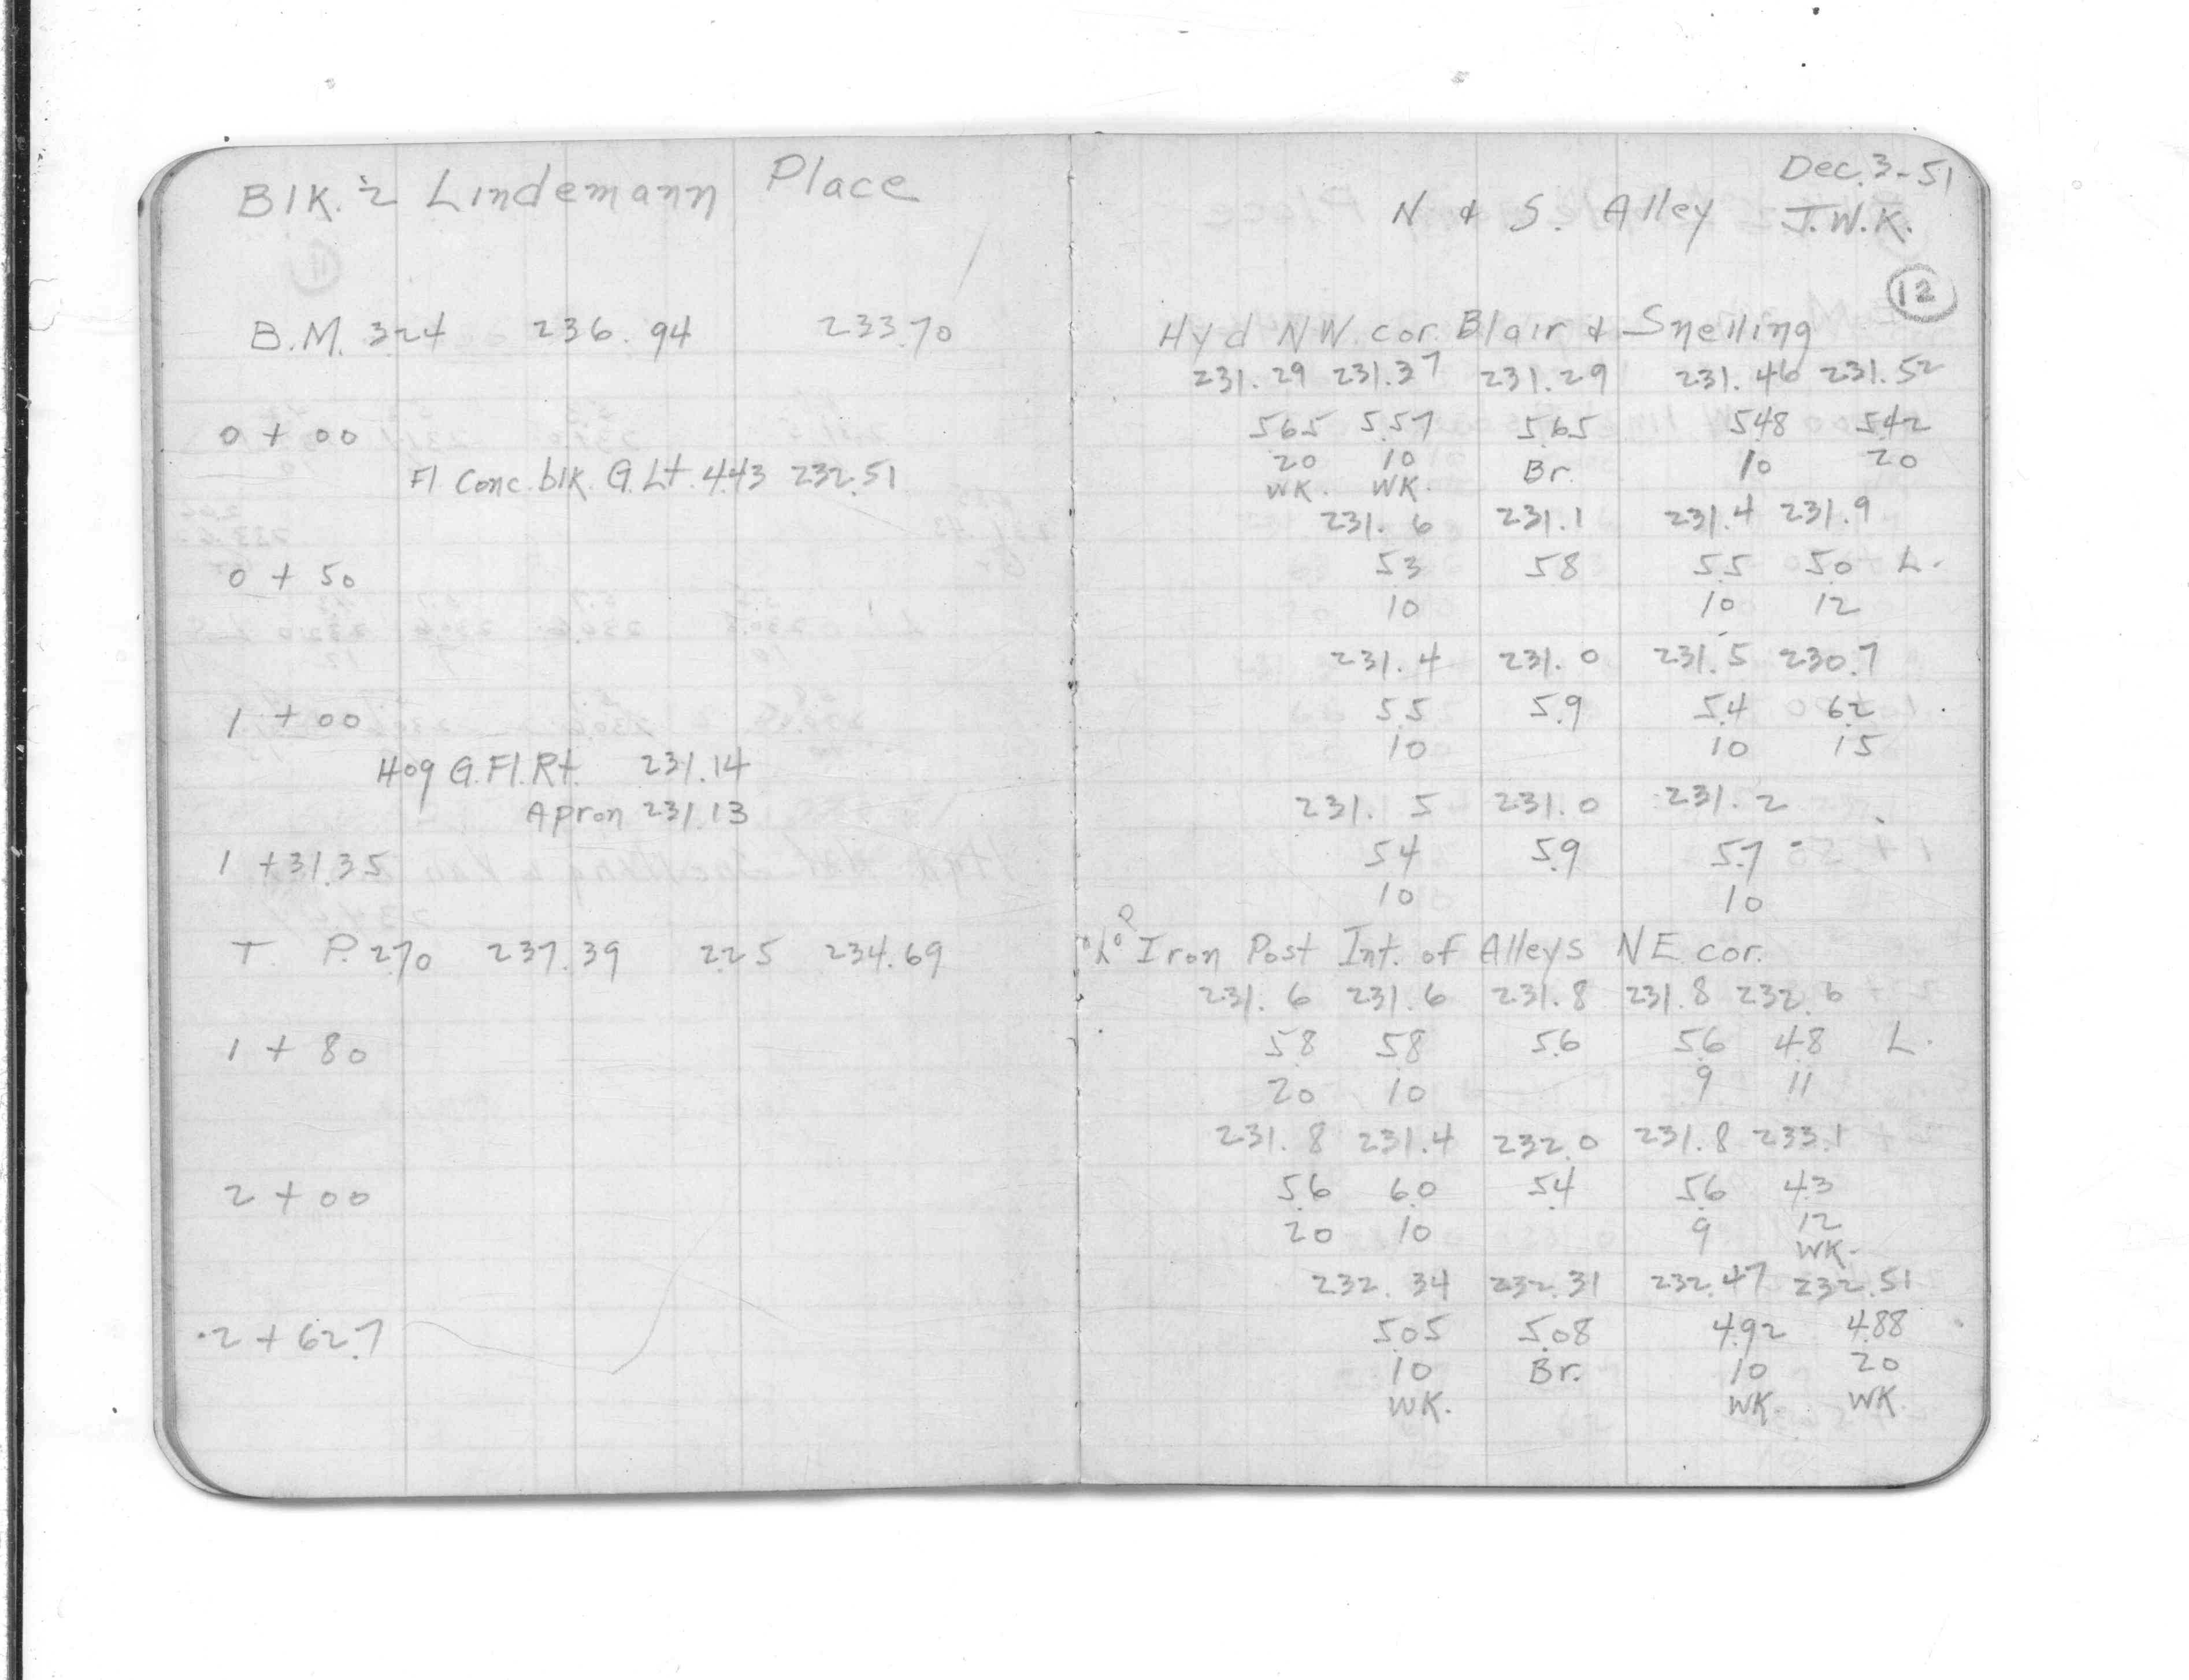 Blk. 2 Lindemann Place
B.M. 3.24 236.94 233.70
0 + 00
Fl Conc. blk. G. Lt. 4.43 232.51
0 + 50
1 + 00
Hog G. Fl. Rt. 231.14
Apron 231.13
1 + 31.35
T. P. 2.70 237.39 2.25 234.69
1 + 80
2 + 00
2 + 62.7
Dec. 3-51
N & S. Alley J.W.K.
12
Hyd NW. cor. Blair & Snelling
231.29 231.37 231.29 231.46 231.52
5.65 5.57 5.65 5.48 5.42
20 10 Br. 10 20
WK. WK.
231.6 231.1 231.4 231.9
5.3 5.8 5.5 5.0 L.
10 10 12
231.4 231.0 231.5 230.7
5.5 5.9 5.4 6.2
10 10 15
231.5 231.0 231.2
5.4 5.9 5.7
10 10
Iron Post Int. of Alleys NE cor.
231.6 231.6 231.8 231.8 232.6
5.8 5.8 5.6 5.6 4.8 L.
20 10 9 11
231.8 231.4 232.0 231.8 233.1
5.6 6.0 5.4 5.6 4.3
20 10 9 12
WK.
232.34 232.31 232.47 232.51
5.05 5.08 4.92 4.88
10 Br. 10 20
WK. WK. WK.